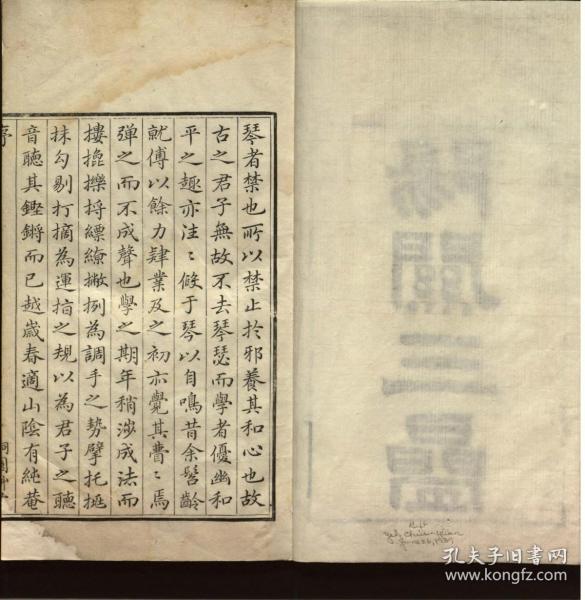 琴者禁也所以禁止於邪養其和心也故
古之君子無故不去琴瑟而學者優幽和
平之趣亦洼〻候于琴以自鳴昔余髫齡
就傅以餘力肄業及之初亦覺其費〻焉
弹之而不成聲也學之期年稍涉成法而
摟㩓擽捋縹繚撇挒為調手之勢擘托挻
抹勾剔打摘為運指之規以為君子之聽
音聽其鏗鏘而已越嵗春適山陰有純菴
序
陽關三疊
Gift
June 26, 1937
孔夫子旧书网
www.kongfz.com